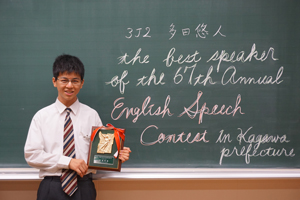 3J2 多田悠人
the best speaker
of the 67th Annual
English Speech
Contest in Kagawa
prefecture